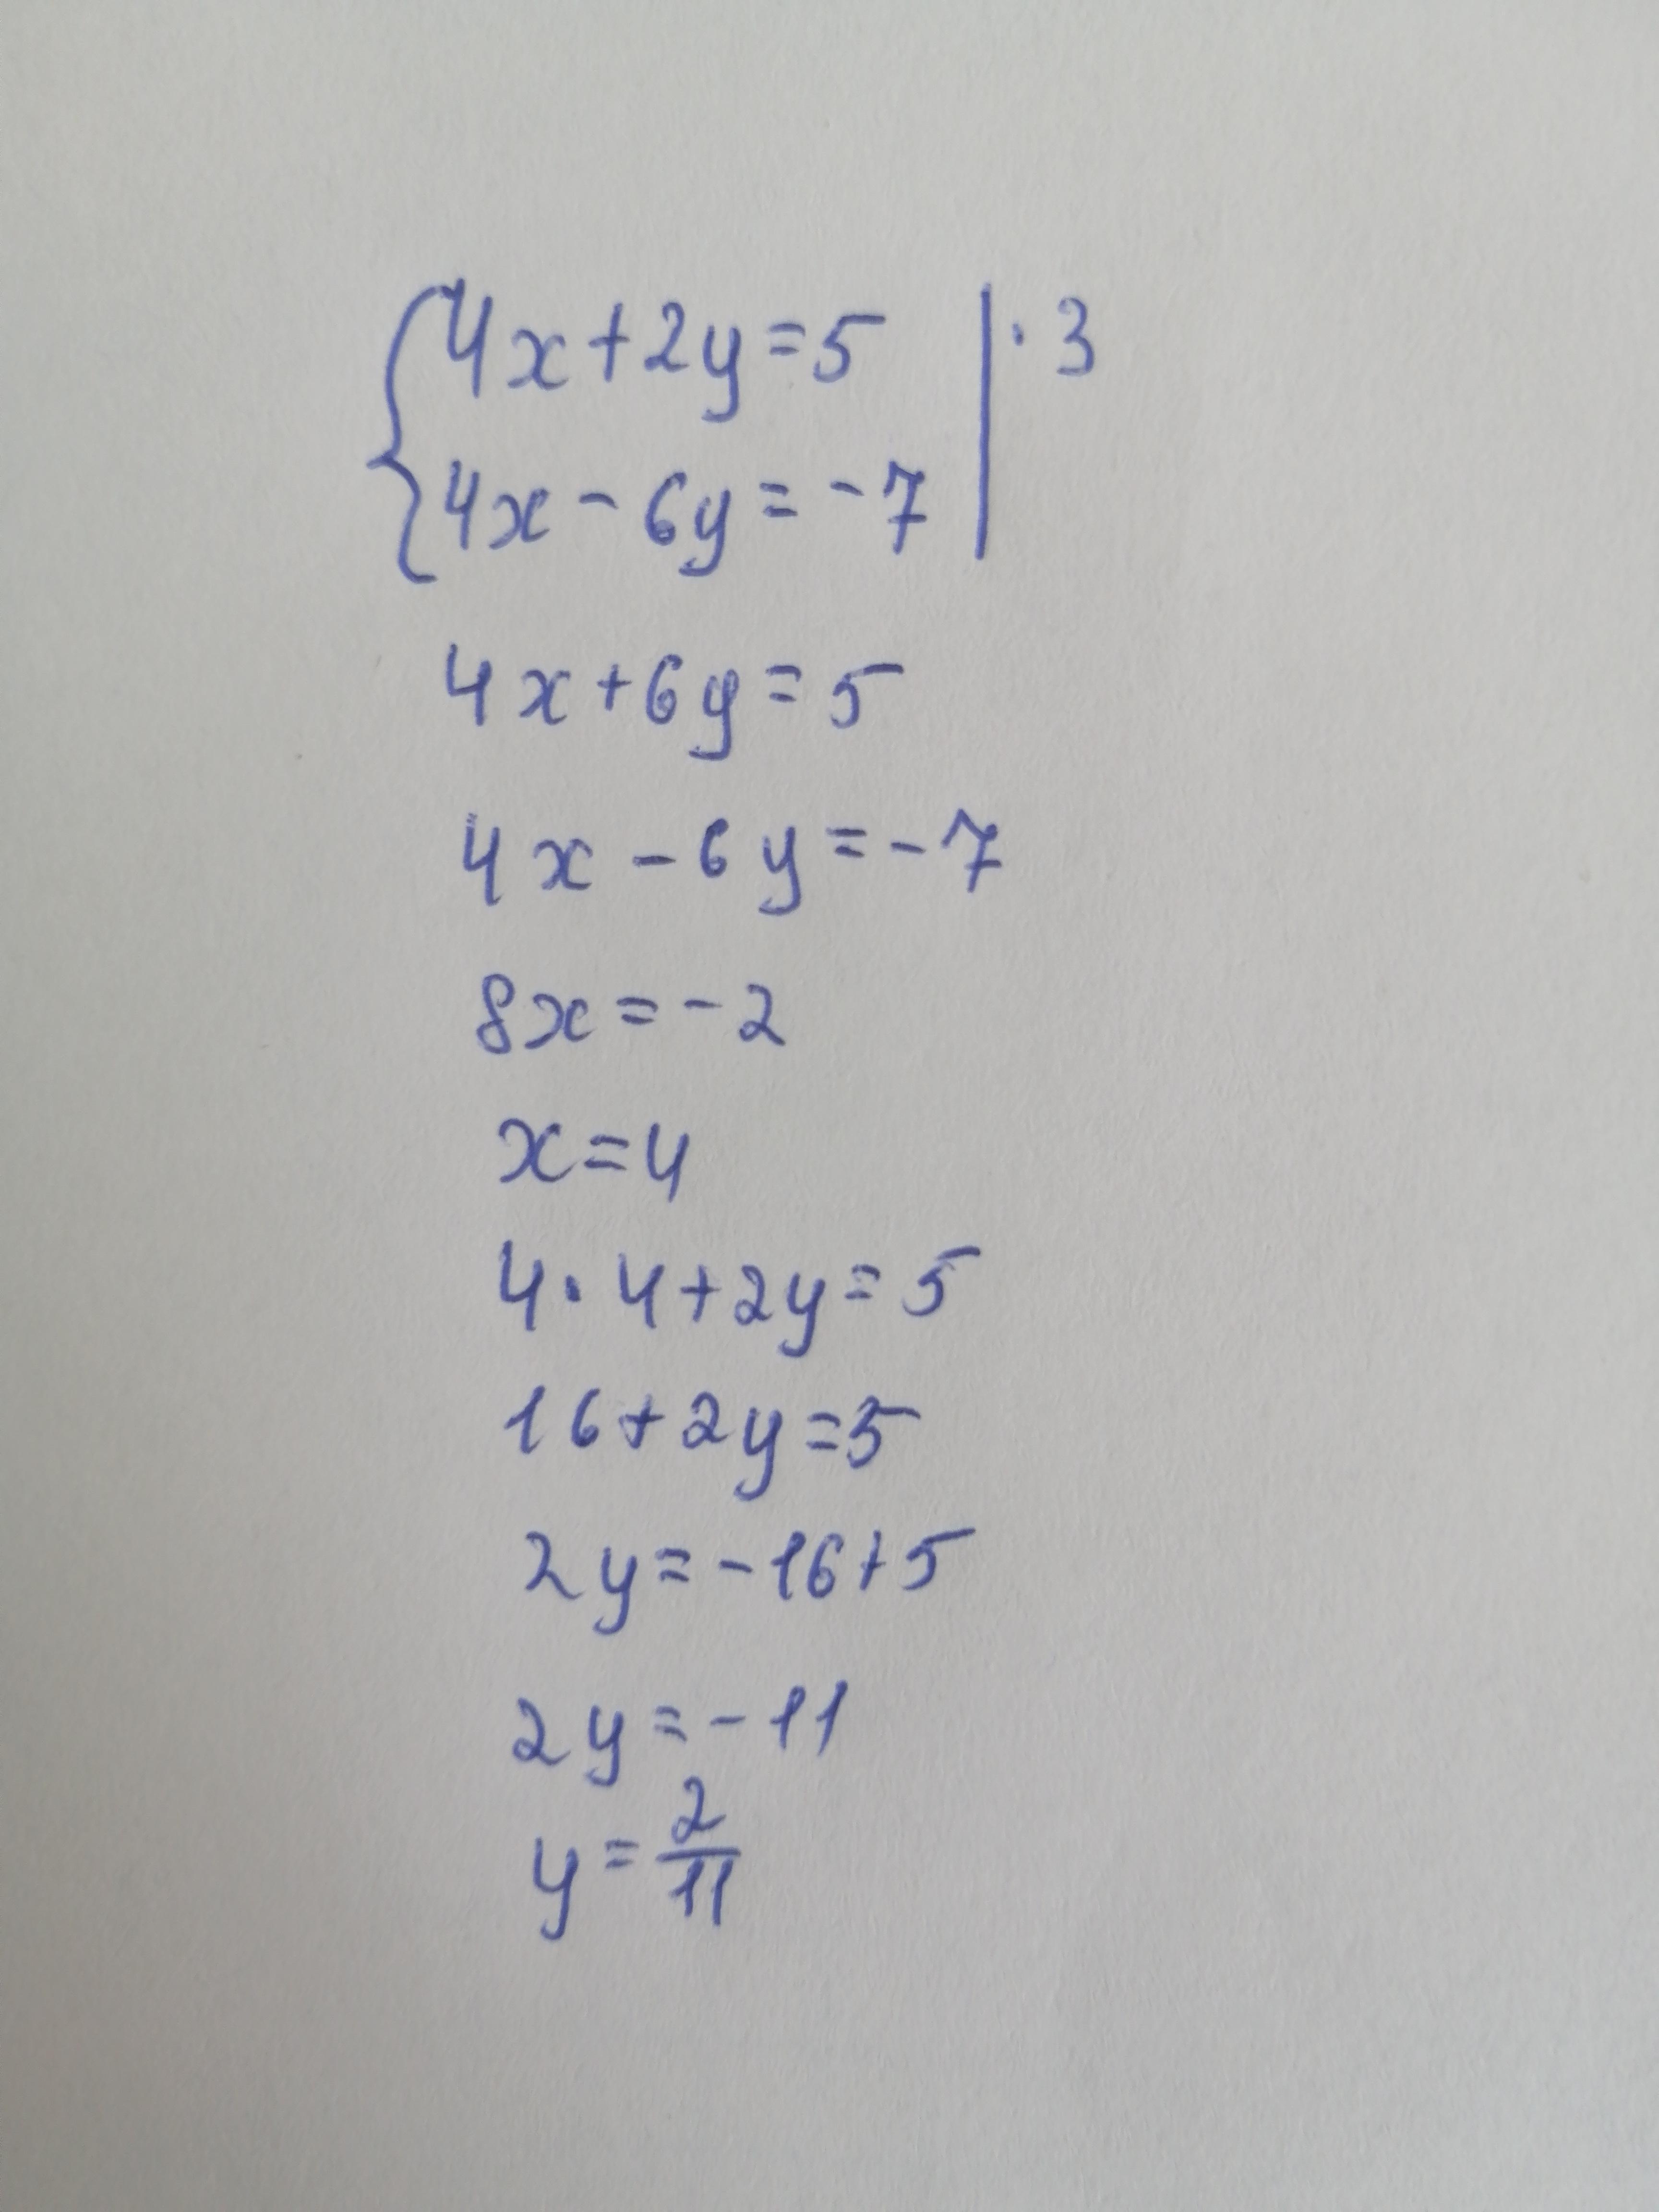 {4x+2y=5 | · 3
{4x-6y=-7 |
4x+6y=5
4x-6y=-7
8x=-2
x=4
4·4+2y=5
16+2y=5
2y=-16+5
2y=-11
y=2/11